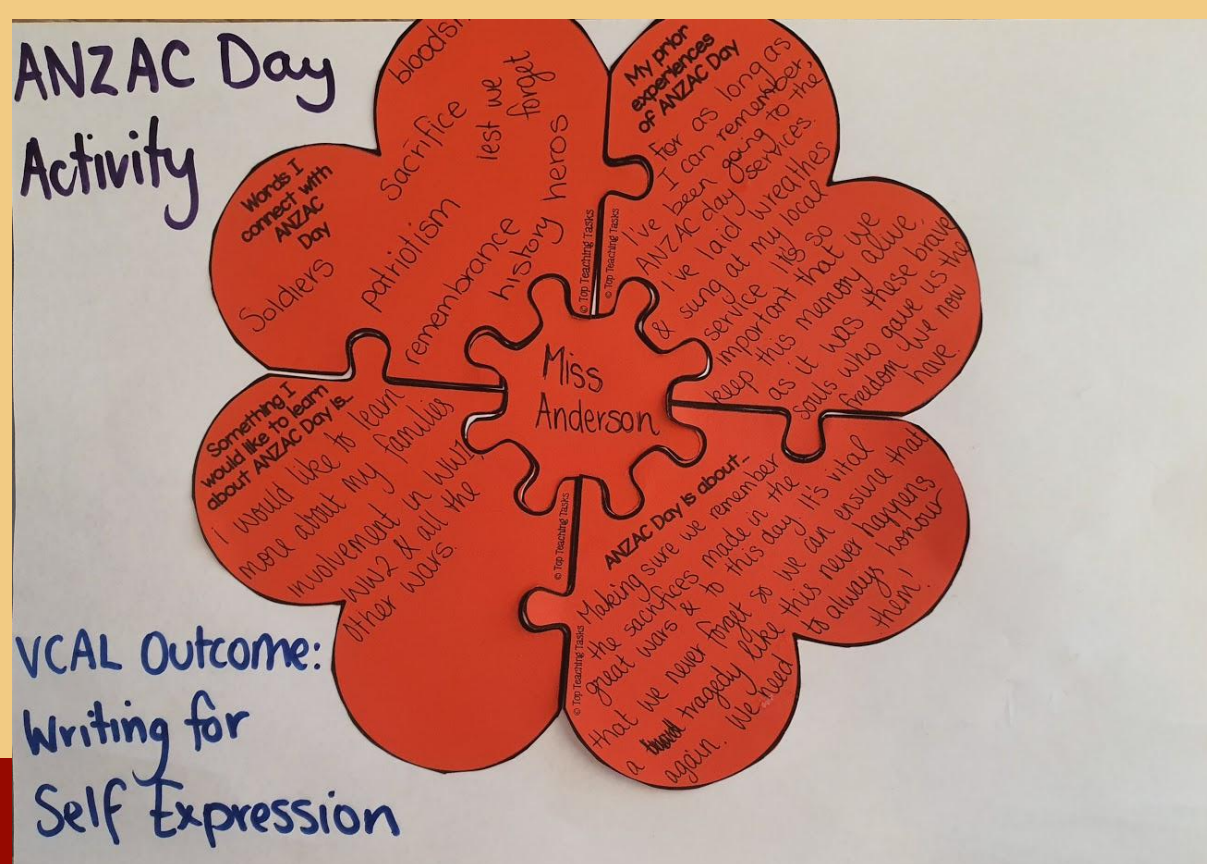 ANZAC Day
Activity
Words I
connect with
ANZAC
Day
Soldiers
Sacrifice
lest we
forget
patriotism
remembrance
history
heros
© Top Teaching Tasks
My prior
experiences
of ANZAC Day
For as long as
I can remember,
I've been going to the
ANZAC day services.
I've laid wreathes
& sung at my local
service. It's so
important that we
keep this memory alive,
as it was these brave
souls who gave us the
freedom we now
have.
© Top Teaching Tasks
Miss
Anderson
Something I
would like to learn
about ANZAC Day is...
I would like to learn
more about my families
involvement in WW1,
WW2 & all the
other wars.
© Top Teaching Tasks
ANZAC Day is about...
Making sure we remember
the sacrifices made in the
great wars & to this day it's vital
that we never forget so we can ensure that
a tragedy like this never happens
again. We need to always honour
them!
© Top Teaching Tasks
VCAL Outcome:
Writing for
Self Expression